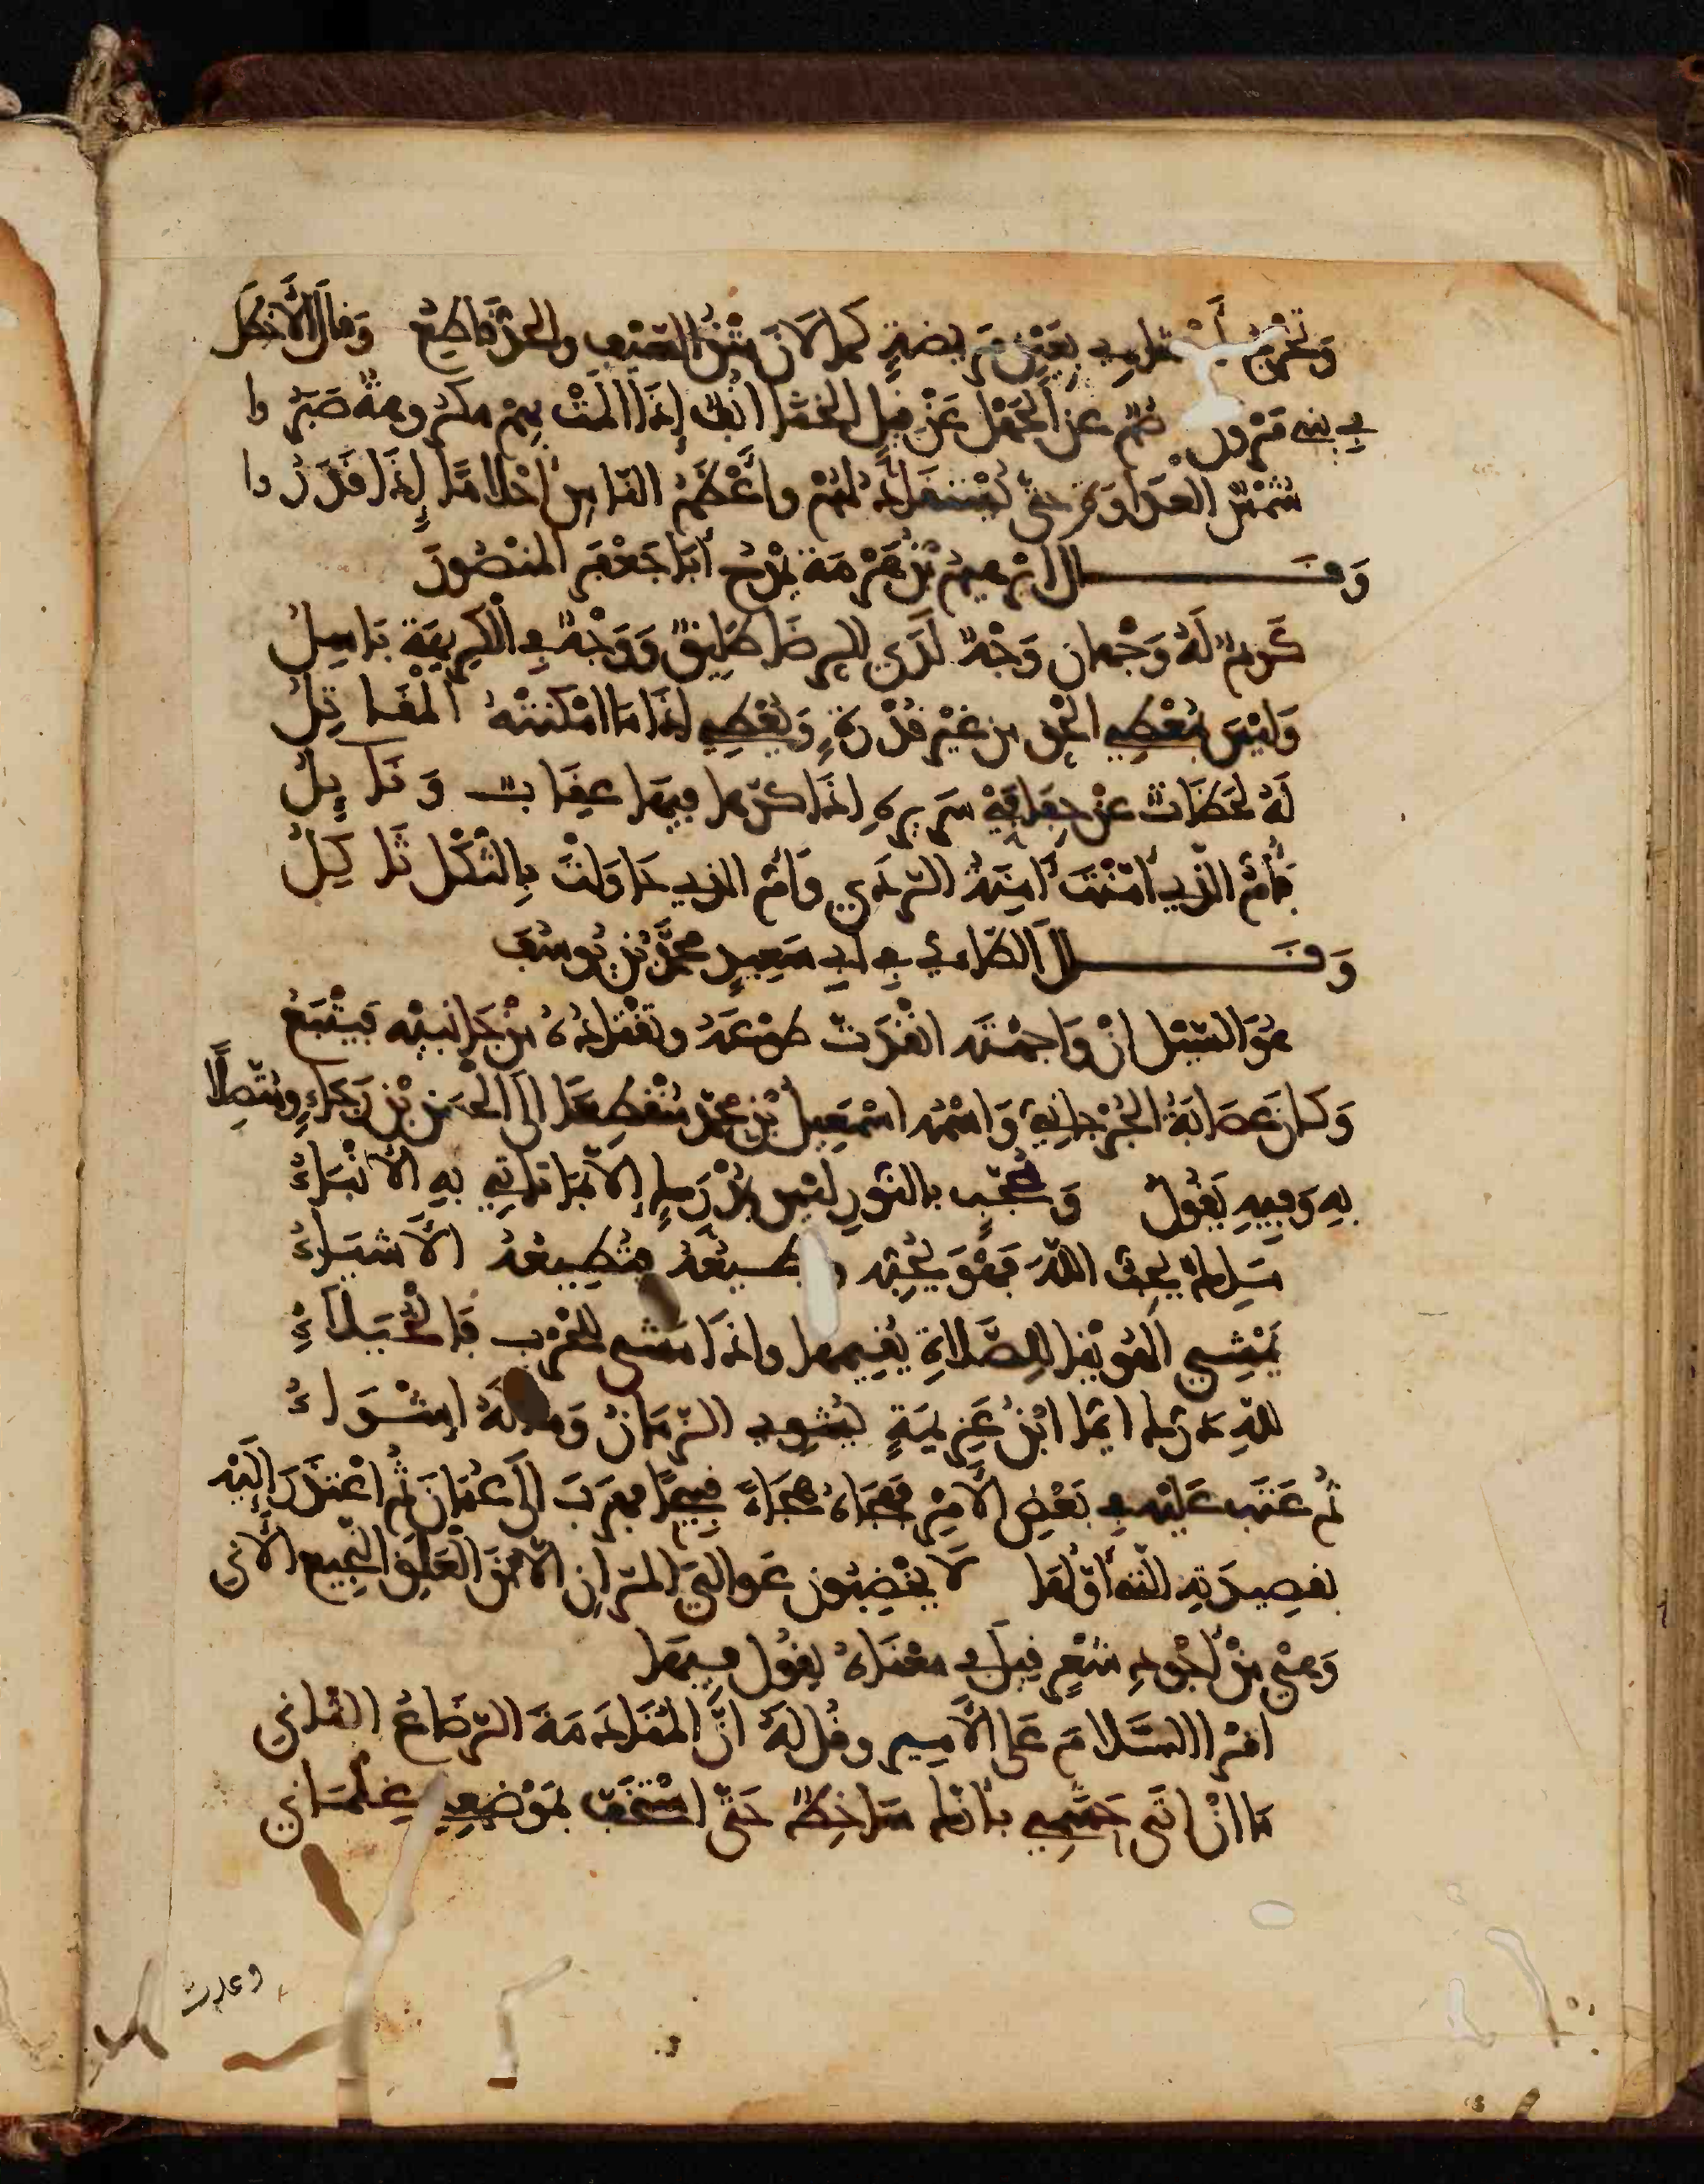 وَتُخْرِجُ بِعَيْنٍ مَرِيضَةٍ كما لَانَ مَتْنُ السَّيْفِ والحَدُّ قَاطِعُ وَقالَ الأَخْطَلُ
في بني مَرْوان صُمٌّ عن الجَهْلِ عَنْ قِيلِ الخَنَا أُنُفٌ إذا المَّتْ بِهِمْ مكروهةٌ صَبَرُوا
شُمْسُ العَدَاوَةِ حتّى يُسْتَقَادَ لهُمْ وأَعْظَمُ النّاسِ أحْلامًا إذا قَدَرُوا
وَقَال ابْرهيمُ بْنُ هَرْمَةَ يَمْدَحُ أبَا جَعْفَرٍ المَنْصُورَ
كَرِيمٌ لَهُ وَجْهانِ وَجْهٌ لَدَى الرِّضَا طَلِيقٌ وَوَجْهٌ في الْكَرِيهَةِ بَاسِلُ
وَلَيْسَ بمُعْطِي الحَقِّ مِن غَيْرِ قُدْرَةٍ وَيُعْطِي إذَا مَا امْكَنَتْهُ الْمَقَاتِلُ
لَهُ لَحَظَاتٌ عنْ حِفَافَيْ سَرِيرِهِ إذَا كَرَّها فِيهَا عِقَابٌ وَنَايِلُ
فَأُمُّ الَّذِي أَمَّنْتَ آمِنَةُ الرَّدَى وَأُمُّ الذِي حَاوَلْتَ بِالثُّكْلِ ثَاكِلُ
وَقَال الطَّائيُّ في أبي سَعِيدٍ محمَّدِ بْنِ يُوسُفَ
هُوَ السَّيْلُ انْ وَاجَهْتَه انْقَدْتَ طَوْعَهُ وتَقْتَادُهُ مِنْ جَانِبَيْهِ فَيَتْبَعُ
وَكانَ عِصَابَةُ الجُرْجانِيُّ وَاسْمُه اسْمَعِيلُ بْنُ محمَّدٍ مُنْقَطِعًا الَى الحسَنِ بْنِ رَجَاءٍ ومُتَّصِلًا
بِهِ وَفِيهِ يَقُولُ وَمُحَجَّبٍ بالنُّورِ لَيْسَ بمُدْرَكٍ إلّا بمَا تَأتِي بِهِ الأنْبَاءُ
مَلِكٌ يُحِبُّ اللهَ فَهْوَ يُحِبُّه ويُطِيعُهُ فتُطِيعُهُ الأشْيَاءُ
يَمْشِي الهُوَيْنَا لِلصَّلاةِ يُقِيمُهَا وإذَا مَشَى لِلحَرْبِ فَالخُيَلَاءُ
للهِ دَرُّكَ أيَّمَا ابْنُ عَزِيمَةٍ الزّمَانُ وَمَالَهُ
ثُمَّ عَتَبَ عَلَيْهِ في بَعْضِ الأَمْرِ فَهَجَاهُ هِجَاءً قَبِيحًا فهَرَبَ الَى عُمَانَ ثُمَّ اعْتَذَرَ إلَيْهِ
بقَصِيدَتِه الّتي أوّلُهَا لَا يَخْضِبُونَ عَوَالِيَ المُرَّانِ الّا مِنَ الْعَلَقِ النَّجِيعِ الآنِي
وَهِيَ مِنْ أجْوَدِ شِعْرٍ قِيلَ في مَعْنَاهُ يقُولُ فِيهَا
اقْرَا السَّلامَ عَلى الأَمِيرِ وقُلْ لهُ انَّ المُنَادَمَةَ الرَّضَاعُ الثّانِي
مَا انْ اتَى حَشَمِي بأنَّكَ سَاخِطٌ حَتَّى اسْتَخَفَّ بمَوْضِعِي غِلْمَانِي
وعدت